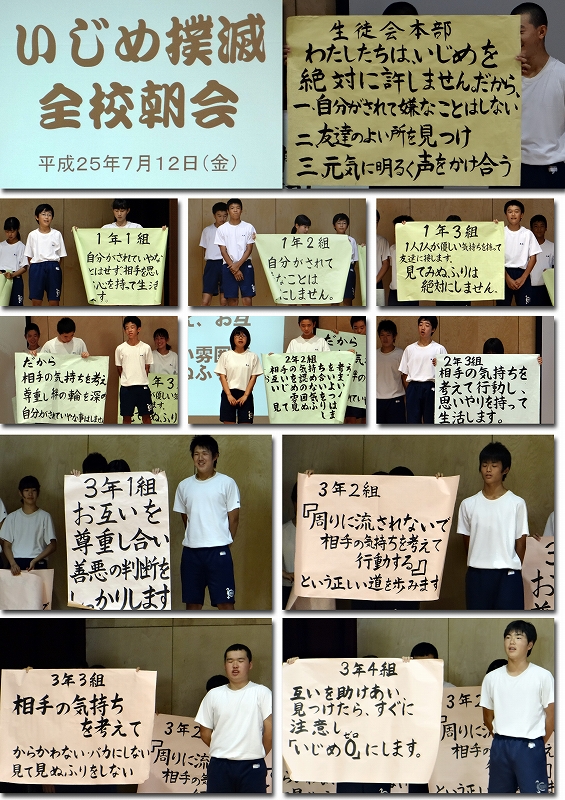 いじめ撲滅
全校朝会
平成25年7月12日(金)
生徒会本部
わたしたちは、いじめを
絶対に許しません。だから、
一、自分がされて嫌なことはしない
二、友達のよい所を見つけ
三、元気に明るく声をかけ合う
1年1組
自分がされていやな
ことはせず、相手を思い
心を持って生活
す。
1年2組
自分がされて
なことは
にしません。
1年3組
1人1人が優しい気持ちを持って
友達に接します。
見てみぬふりは
絶対にしません。
だから
相手の気持ちを考え
尊重し絆の輪を深め
自分がされていや事はしませ
年3
お互
い雰囲
ぬふり
2年2組
相手の気持ちを考え
お互いを認めあい
いじめのない
雰囲気をつ
見て見ぬふりはしま
だから
2年3組
相手の気持ちを
考えて行動し、
思いやりを持って
生活します。
3年1組
お互いを
尊重し合い
善悪の判断を
しっかりします
3年2組
『周りに流されないで
相手の気持ちを考えて
行動する』
という正しい道を歩みます
3年3組
相手の気持ち
を考えて
からかわない・バカにしない
見て見ぬふりをしない
3年2
『周りに流
相手の気持
3年4組
互いを助けあい、
見つけたら、すぐに
注意し
ゼロ
「いじめ0」にします。
3年2
周りに流
相手の気
という正し